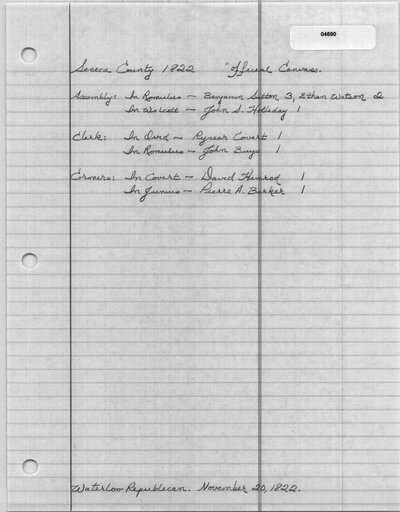 04690
Seneca County 1822 "Official Canvass.
Assembly: In Romulus — Benjamin Sutton 3, Ethan Watson 2
In Wolcott — John S. Holliday 1
Clerk: In Ovid — Rynear Covert 1
In Romulus — John Buys 1
Coroners: In Covert — David Himrod 1
In Junius — Pierre A. Barker 1
Waterloo Republican. November 20, 1822.